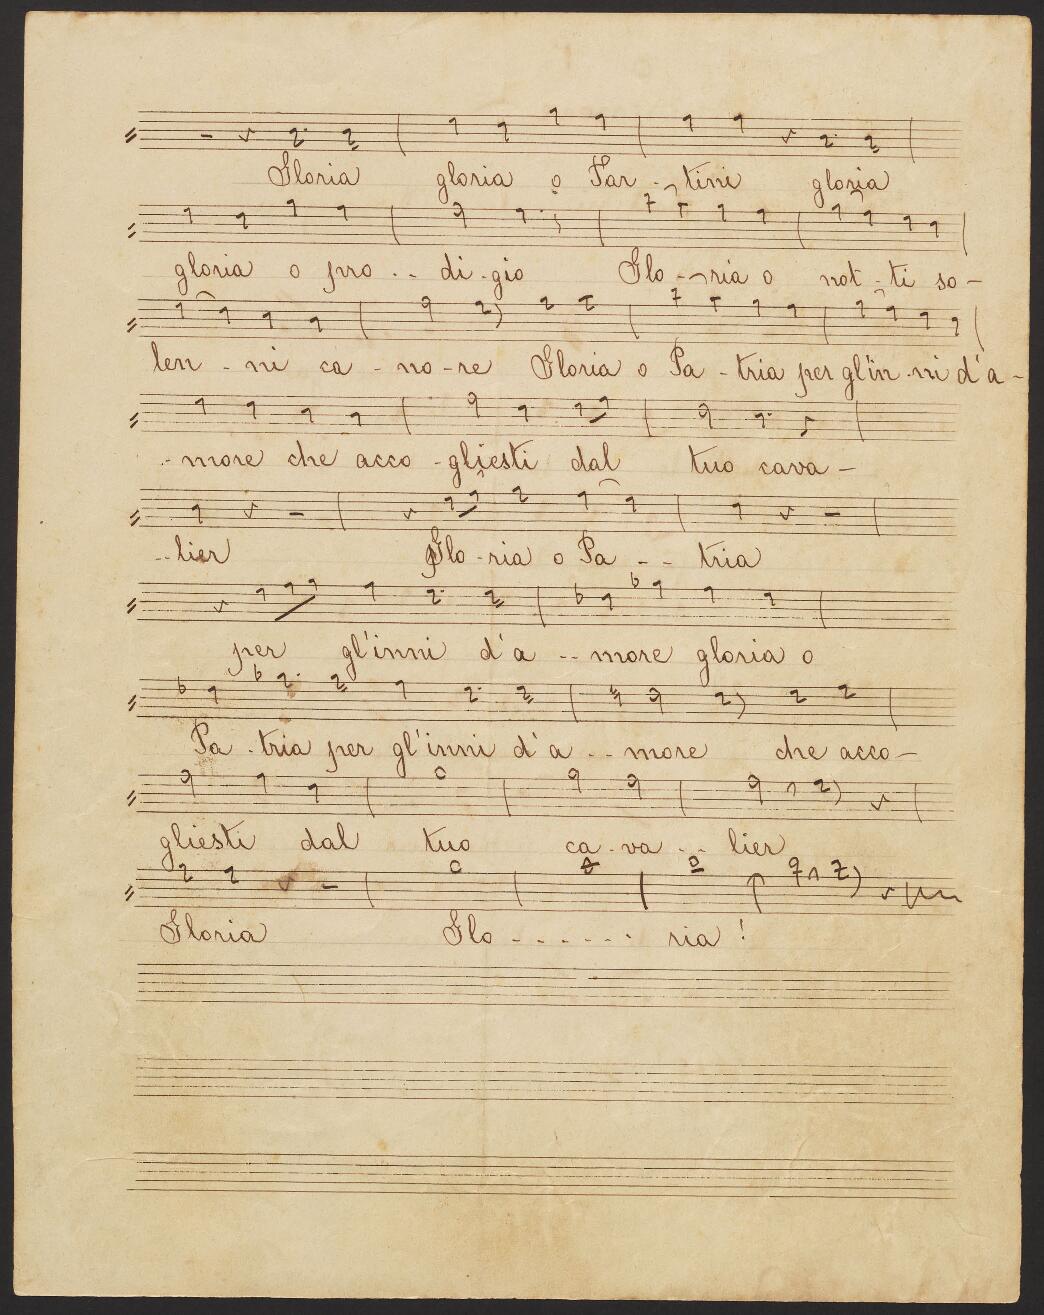 Gloria gloria o Tar - tini gloria
gloria o pro - - di - gio Glo - - ria o not - ti so -
len - ni ca - no - re Gloria o Pa - tria per gl'in - ni d'a -
- more che acco - gliesti dal tuo cava -
- - lier Glo - ria o Pa - - tria
per gl'inni d'a - - more gloria o
Pa - tria per gl'inni d'a - - more che acco -
gliesti dal tuo ca - va - - - lier
Gloria Glo - - - - - - ria !